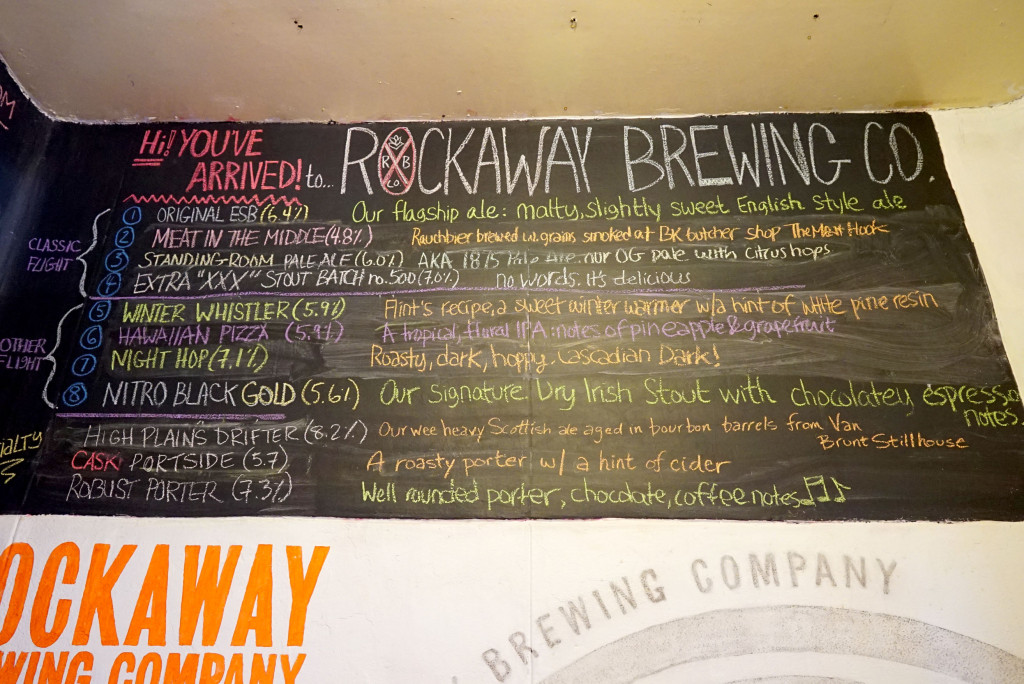 Hi! YOU'VE
ARRIVED! to... ROCKAWAY BREWING CO.
R B
CO
CLASSIC
FLIGHT
1 ORIGINAL ESB (6.4%) Our flagship ale: malty, slightly sweet English Style ale
2 MEAT IN THE MIDDLE (4.8%) Rauchbier brewed w. grains smoked at BK butcher shop The Meat Hook
3 STANDING ROOM PALE ALE (6.0%) AKA 1875 Pale Ale. our OG pale with citrus hops
4 EXTRA "XXX" STOUT BATCH no. 500 (7.0%) no words. It's delicious
OTHER
FLIGHT
5 WINTER WHISTLER (5.9%) Flint's recipe, a sweet winter warmer w/a hint of white pine resin
6 HAWAIIAN PIZZA (5.9%) A tropical, floral IPA: notes of pineapple & grapefruit
7 NIGHT HOP (7.1%) Roasty, dark, hoppy. Cascadian Dark!
8 NITRO BLACK GOLD (5.6%) Our signature Dry Irish Stout with chocolatey espresso
notes.
IALTY
HIGH PLAINS DRIFTER (8.2%) Our wee heavy Scottish ale aged in bourbon barrels from Van
Brunt Stillhouse
CASK PORTSIDE (5.7) A roasty porter w/ a hint of cider
ROBUST PORTER (7.3%) Well rounded porter, chocolate, coffee notes
OCKAWAY
WING COMPANY
BREWING COMPANY